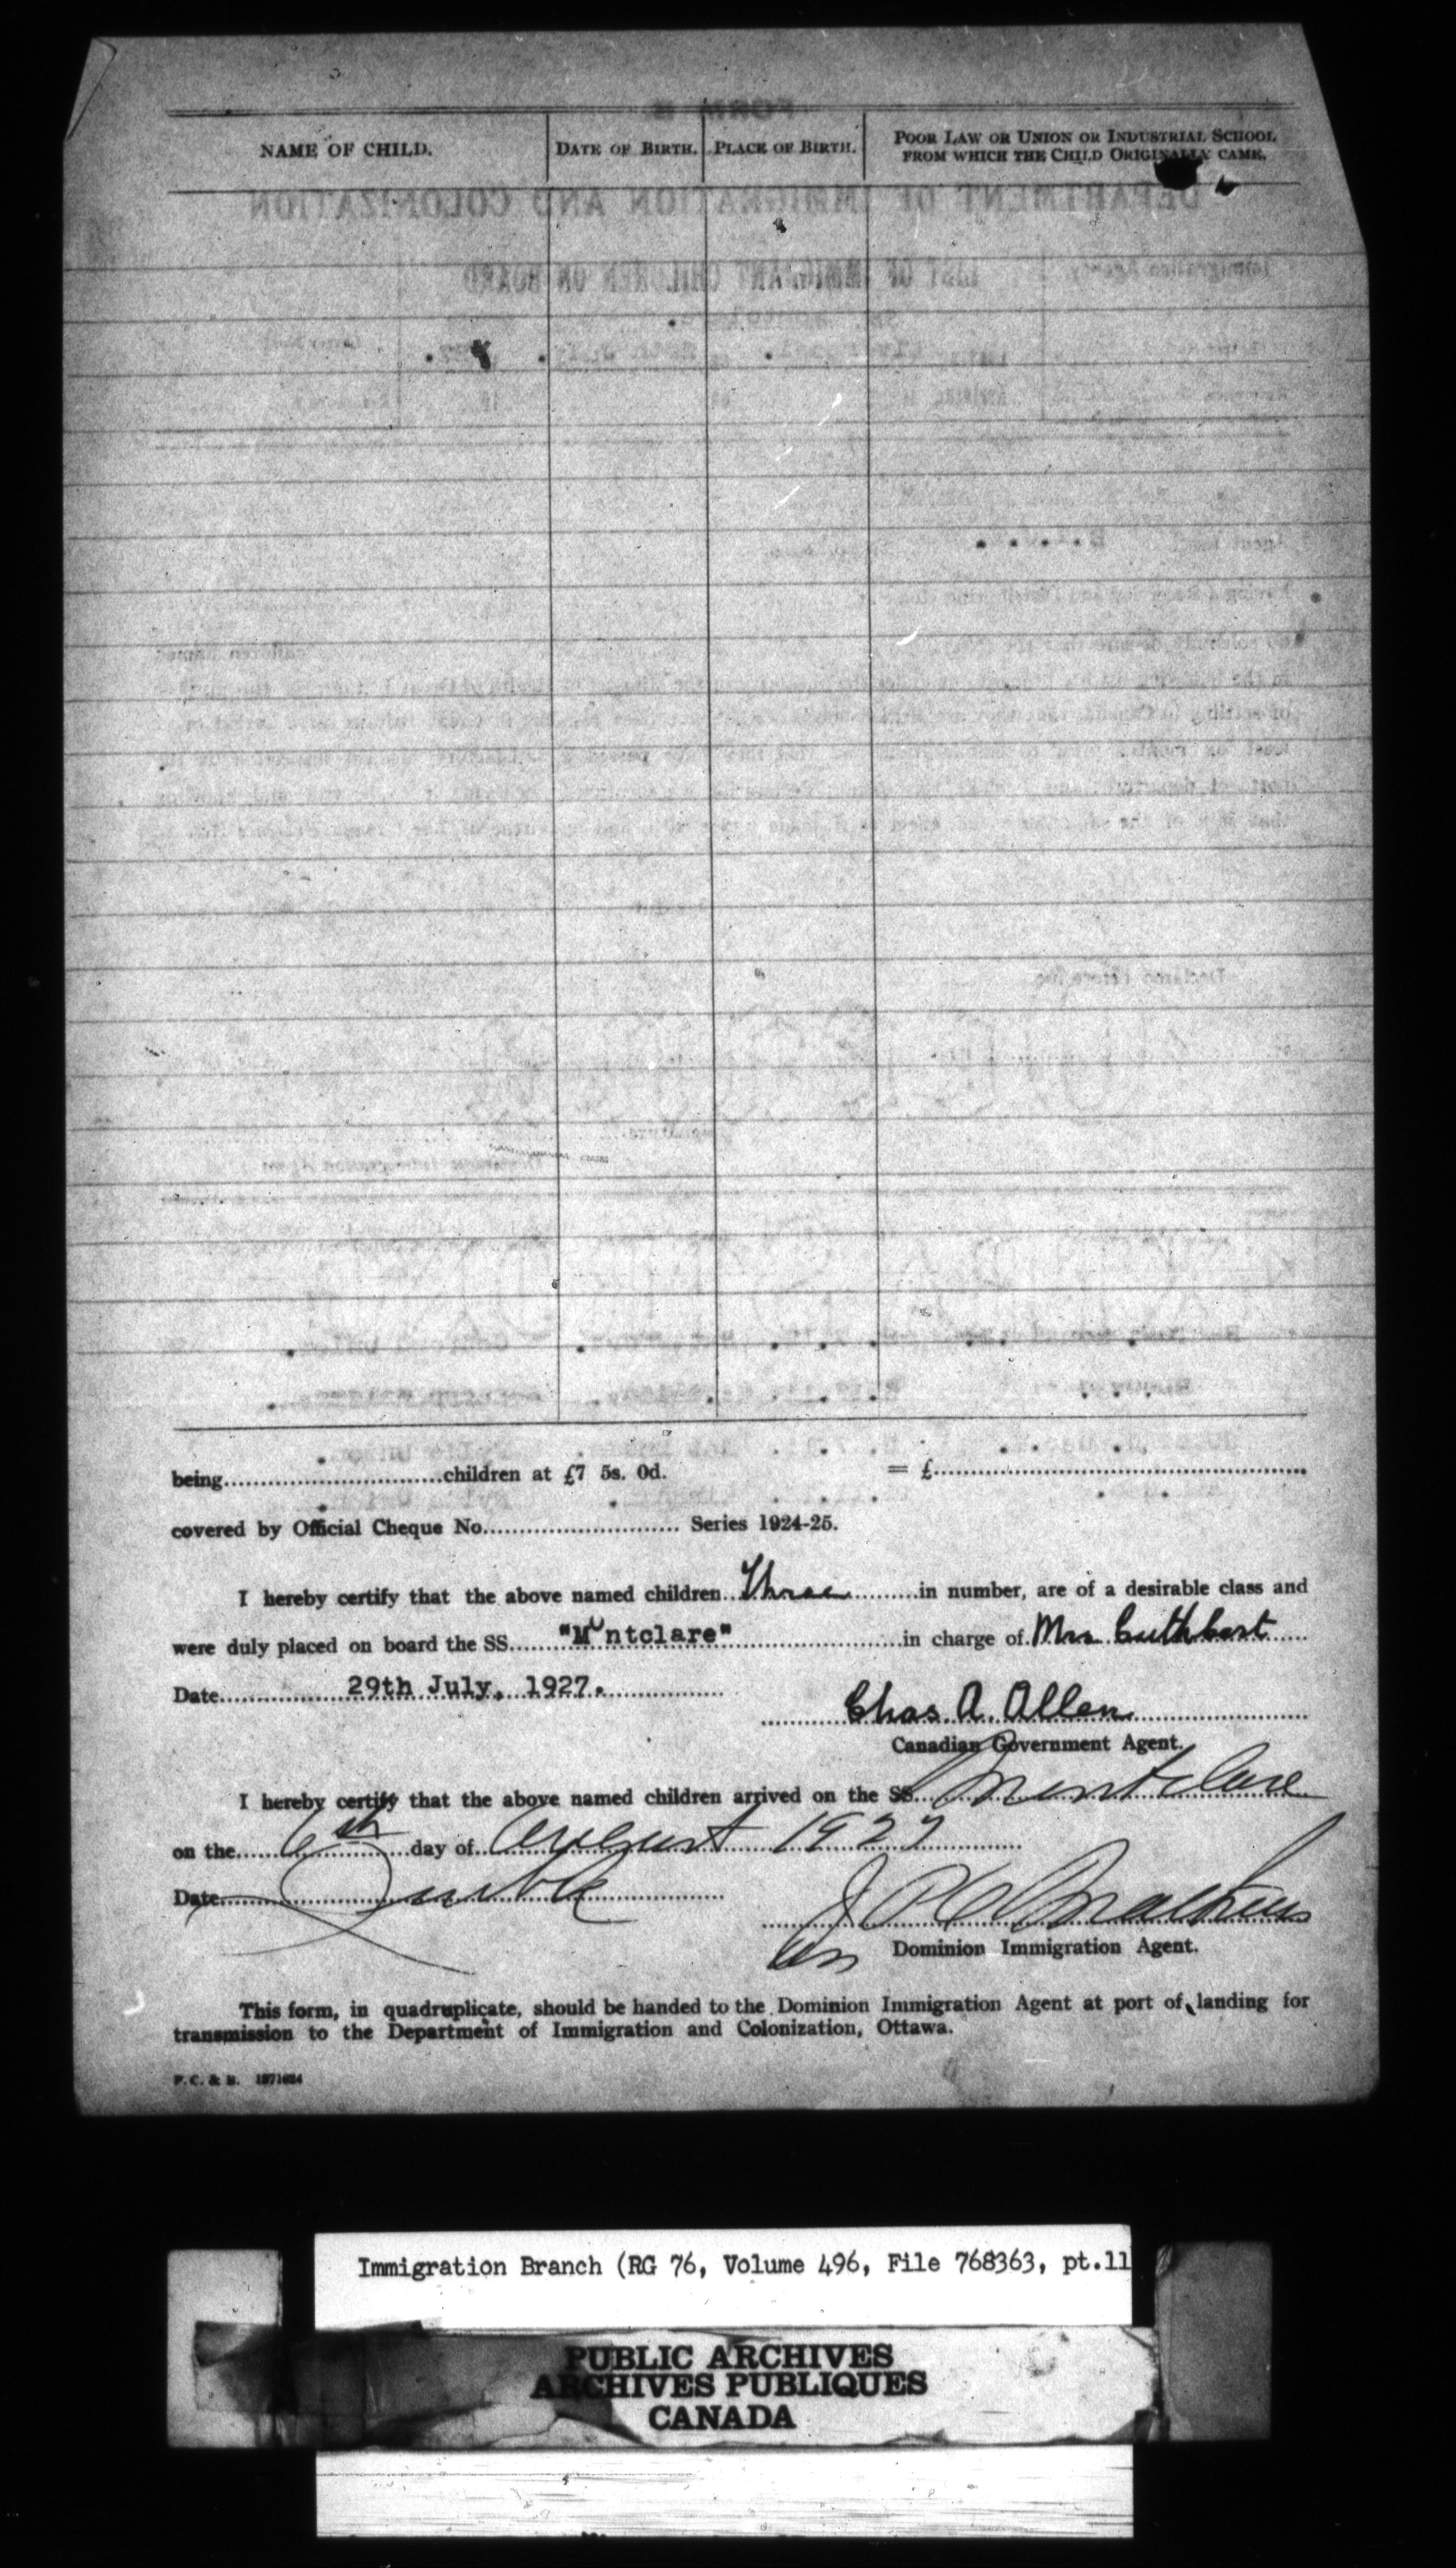 NAME OF CHILD. DATE OF BIRTH. PLACE OF BIRTH. POOR LAW OR UNION OR INDUSTRIAL SCHOOL
FROM WHICH THE CHILD ORIGINALLY CAME.
being children at £7 5s. 0d. = £
covered by Official Cheque No. Series 1924-25.
I hereby certify that the above named children Three in number, are of a desirable class and
were duly placed on board the SS. "Montclare" in charge of Mrs Cuthbert
Date 29th July, 1927.
Chas. A. Allen
Canadian Government Agent.
I hereby certify that the above named children arrived on the SS. Montclare
on the 6th day of August 1927
Date Quebec
Dominion Immigration Agent.
This form, in quadruplicate, should be handed to the Dominion Immigration Agent at port of landing for
transmission to the Department of Immigration and Colonization, Ottawa.
Immigration Branch (RG 76, Volume 496, File 768363, pt.11
PUBLIC ARCHIVES
ARCHIVES PUBLIQUES
CANADA